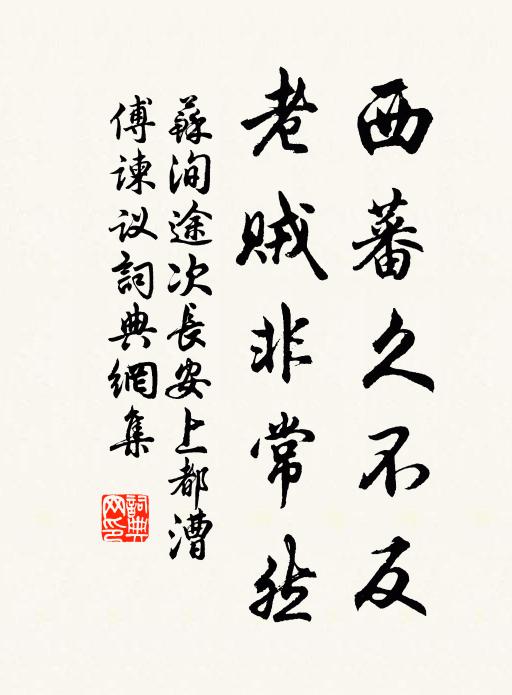 西蕃久不反
老贼非常然
蘇洵途次長安上都漕
傅諫议詞典網集
詞典
网印